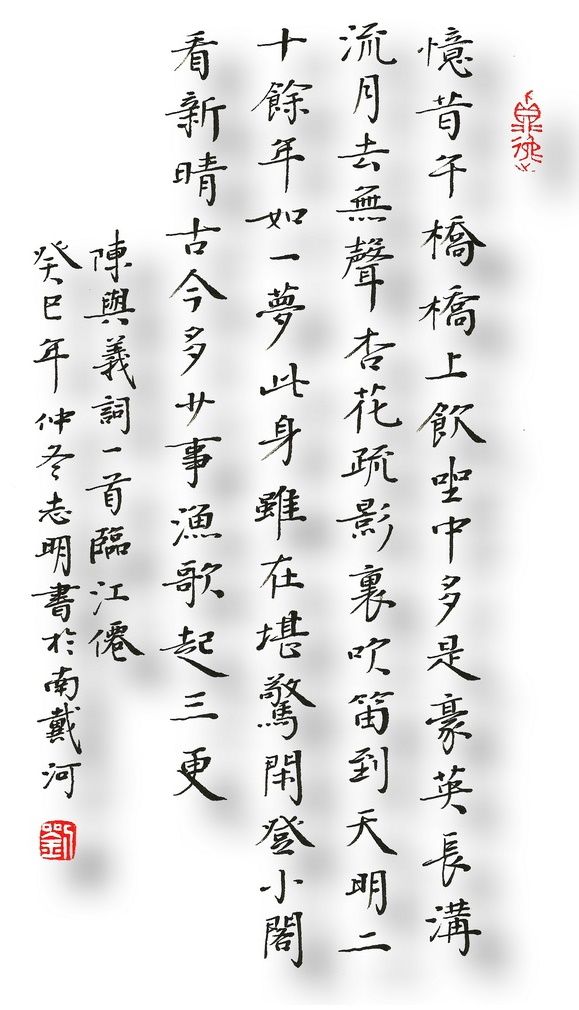 憶昔午橋橋上飲坐中多是豪英長溝
流月去無聲杏花疏影裏吹笛到天明二
十餘年如一夢此身雖在堪驚閑登小閣
看新晴古今多少事漁歌起三更
陳與義詞一首臨江僊
癸巳年仲冬志明書於南戴河
劉